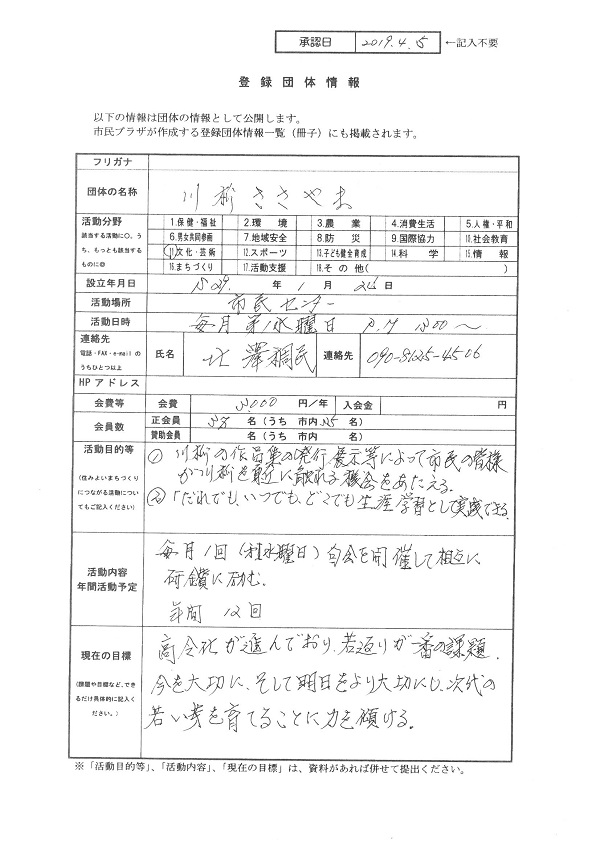 承認日 2019.4.5 ←記入不要
登録団体情報
以下の情報は団体の情報として公開します。
市民プラザが作成する登録団体情報一覧（冊子）にも掲載されます。
フリガナ
団体の名称 川柳ささやま
活動分野
該当する活動に〇。うち、もっとも該当するものに◎
1.保健・福祉 2.環境 3.農業 4.消費生活 5.人権・平和
6.男女共同参画 7.地域安全 8.防災 9.国際協力 10.社会教育
11文化・芸術 12.スポーツ 13.子ども健全育成 14.科学 15.情報
16.まちづくり 17.活動支援 18.その他( )
設立年月日 年 1 月
活動場所 市民センター
活動日時 毎月第1水曜日
連絡先
電話・FAX・e-mailのうちひとつ以上
氏名 北澤稠民 連絡先
HPアドレス
会費等 会費 円/年 入会金 円
会員数 正会員 名（うち 市内 名）
賛助会員 名（うち 市内 名）
活動目的等
（住みよいまちづくりにつながる活動についてもご記入ください）
① 川柳の作品集の発行、展示等によって市民の皆様
が川柳を身近に触れる機会をあたえる。
② 「だれでも、いつでも、どこでも生涯学習として実践できる。
活動内容
年間活動予定
毎月1回（水曜日）句会を開催して相互に
研鑽に励む。
年間 12回
現在の目標
（課題や目標など、できるだけ具体的に記入ください。）
高令化が進んでおり、若返りが一番の課題。
今を大切に、そして明日をより大切にし、次代の
若い芽を育てることに力を傾ける。
※「活動目的等」、「活動内容」、「現在の目標」は、資料があれば併せて提出ください。